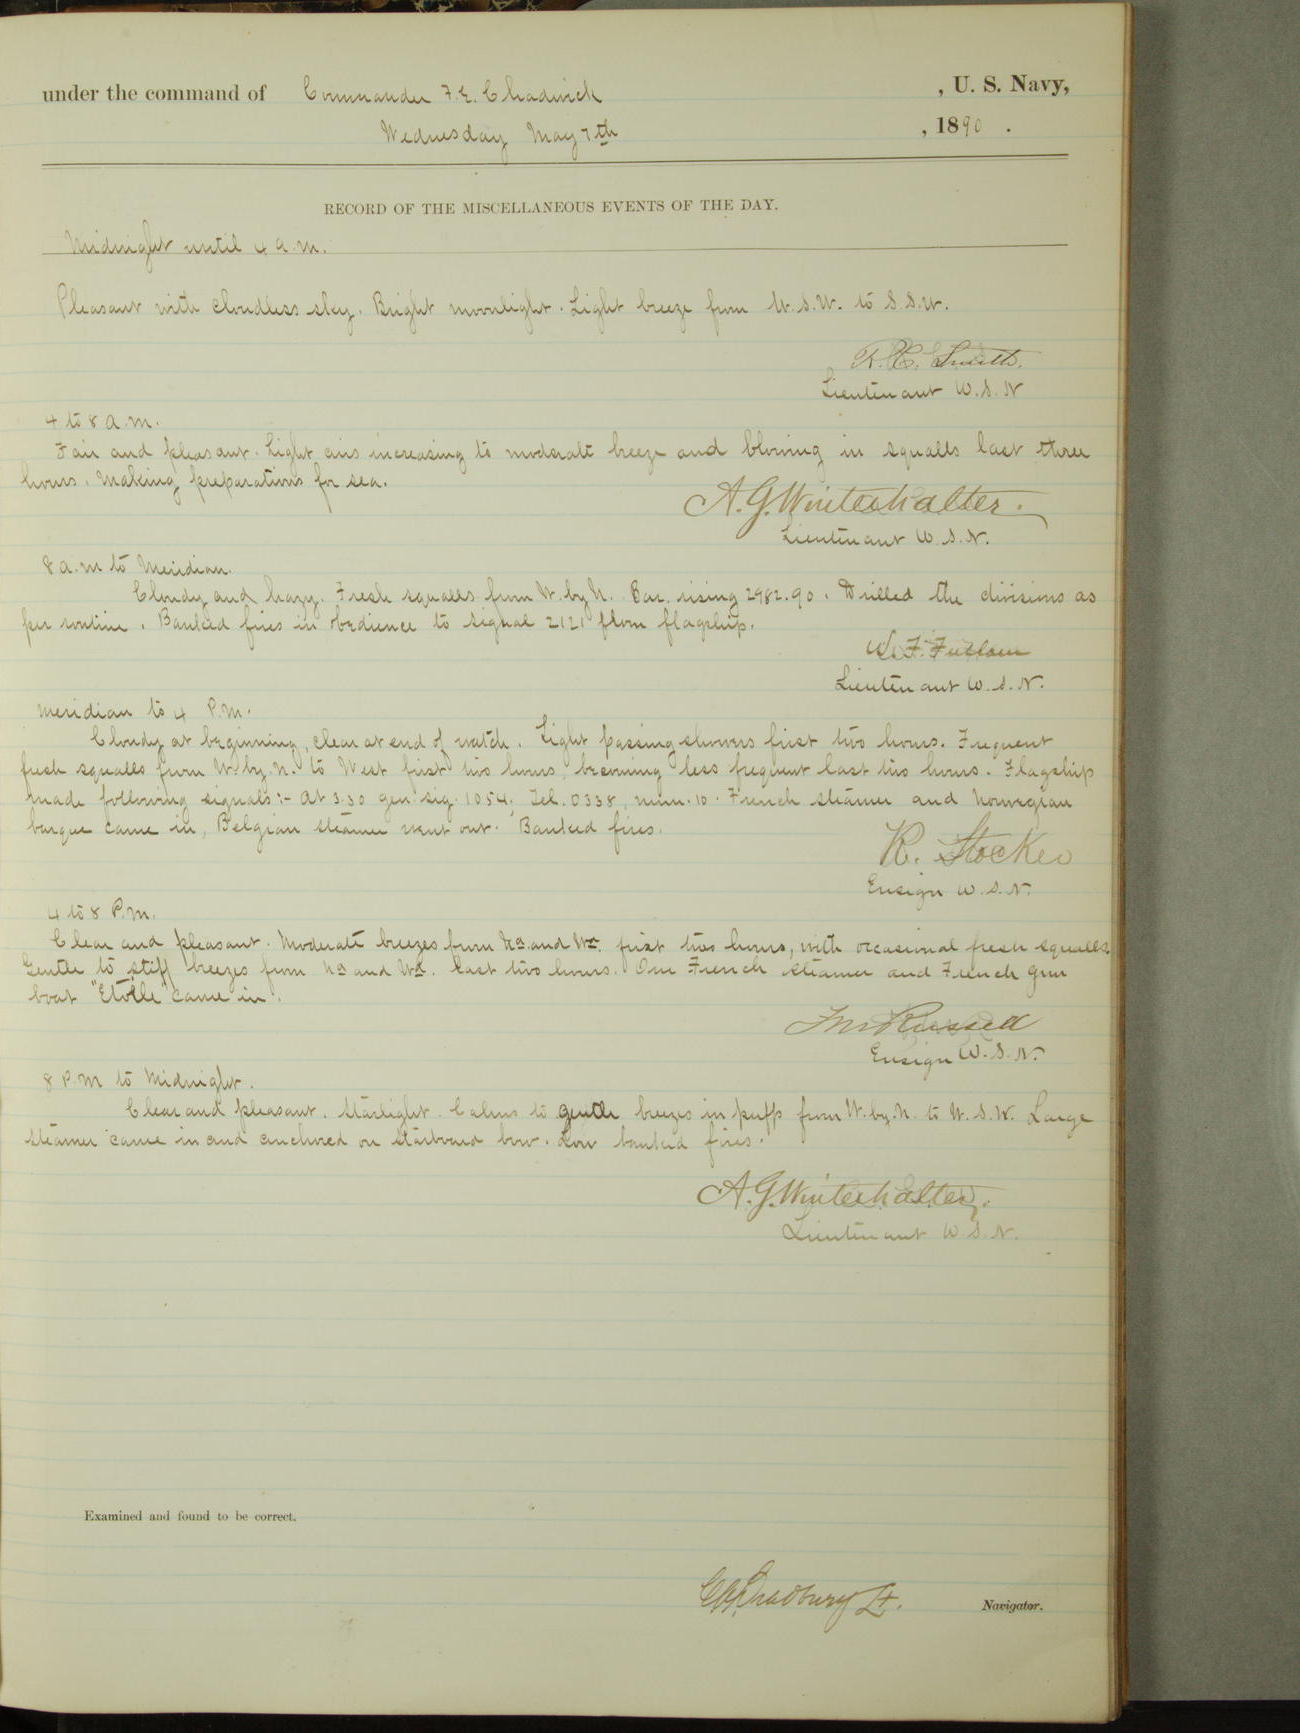 under the command of Commander F. E. Chadwick , U. S. Navy,
Wednesday May 7th , 1890 .
RECORD OF THE MISCELLANEOUS EVENTS OF THE DAY.
Midnight until 4 a.m.
Pleasant with cloudless sky. Bright moonlight. Light breeze from W.S.W. to S.S.W.
R. C. Smith.
Lieutenant U.S.N
4 to 8 a.m.
Fair and pleasant. Light airs increasing to moderate breeze and blowing in squalls last three
hours. Making preparations for sea.
A. G. Winterhalter.
Lieutenant U.S.N.
8 a.m to Meridian.
Cloudy and hazy. Fresh squalls from W. by N. Bar. rising 2982.90. Drilled the divisions as
per routine. Banked fires in obedience to signal 2121 from flagship.
W. F. Fullam
Lieutenant U.S.N.
Meridian to 4 P.M.
Cloudy at beginning, clear at end of watch. Light passing showers first two hours. Frequent
fresh squalls from W. by N. to West first two hours, becoming less frequent last two hours. Flagship
made following signals:- At 3.30 gen. sig. 1054, Tel. 0338, num. 10. French steamer and Norwegian
barque came in, Belgian steamer went out. Banked fires.
R. Stocker
Ensign U.S.N.
4 to 8 P.M.
Clear and pleasant. Moderate breezes from Nd. and Wd. first two hours, with occasional fresh squalls.
Gentle to stiff breezes from Nd and Wd. last two hours. One French steamer and French gun
boat "Etoile" came in.
Russell
Ensign U.S.N.
8 P.M to Midnight.
Clear and pleasant. Starlight. Calms to gentle breezes in puffs from W. by N. to W.S.W. Large
steamer came in and anchored on starboard bow. Low banked fires.
A. G. Winterhalter.
Lieutenant U.S.N.
Examined and found to be correct.
Bradbury Lt. Navigator.